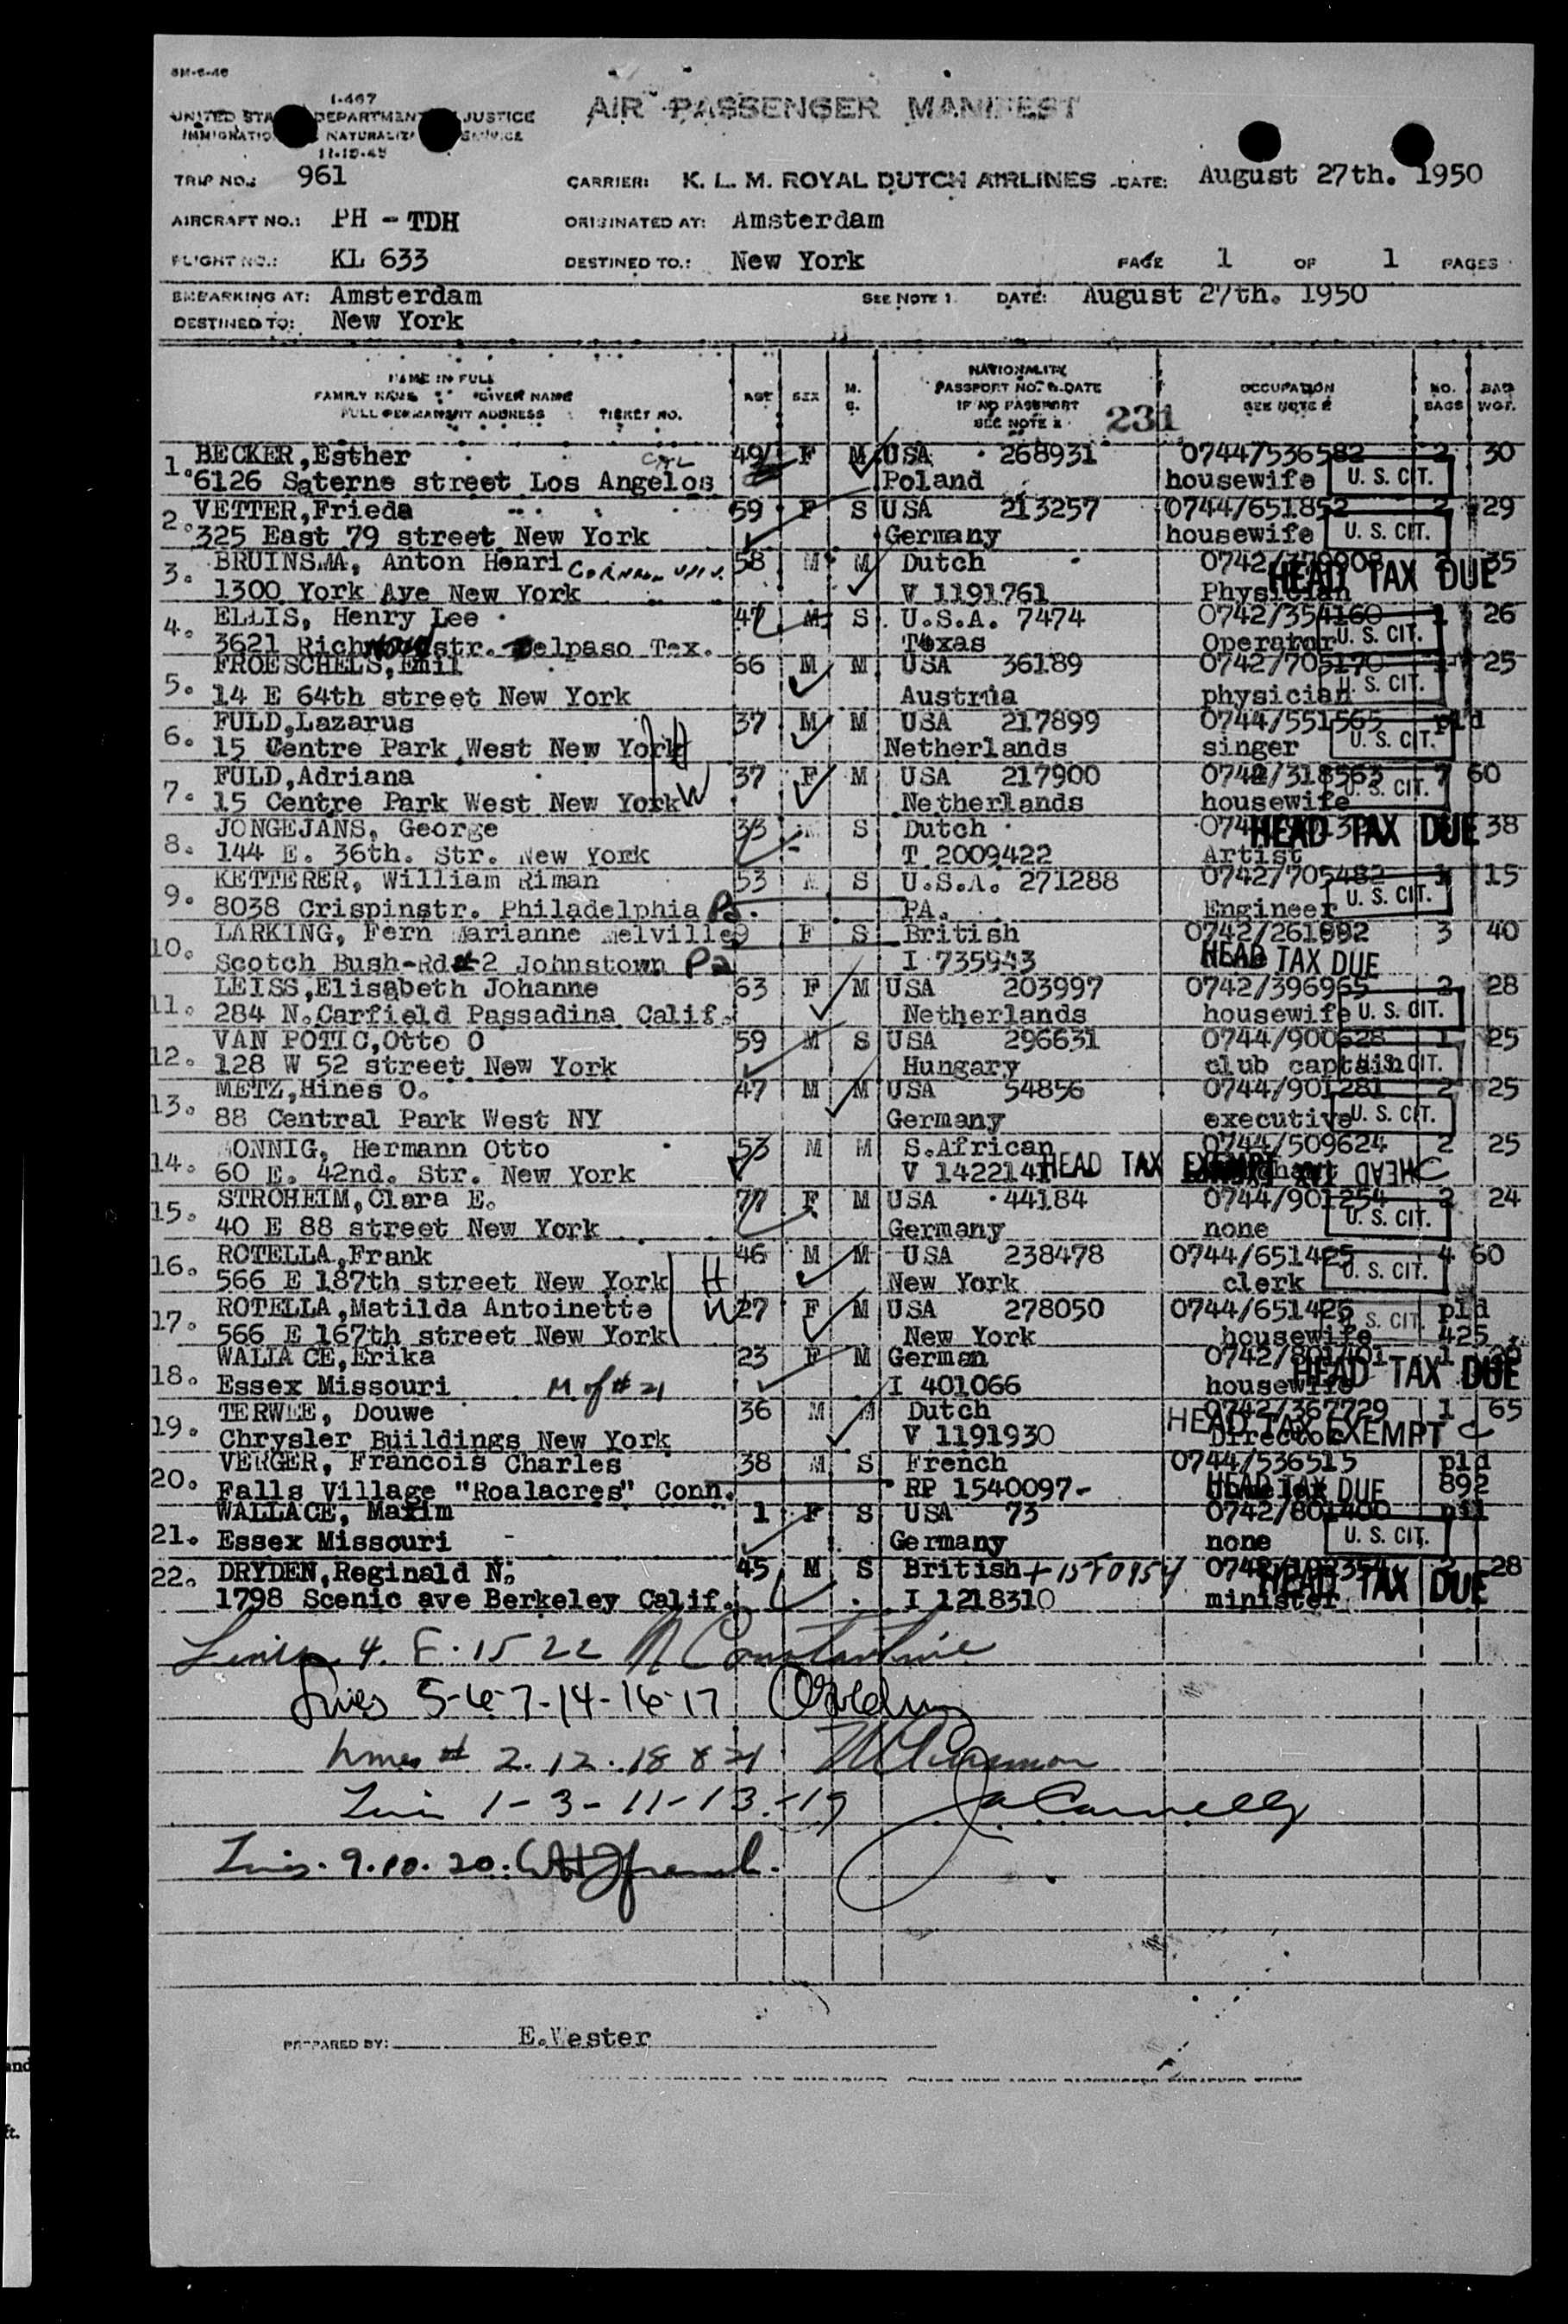 8M-6-46
I-467
UNITED STA DEPARTMENT JUSTICE
IMMIGRATIO NATURALIZ SERVICE
11-15-45
AIR PASSENGER MANIFEST
TRIP NO.: 961 CARRIER: K. L. M. ROYAL DUTCH AIRLINES DATE: August 27th. 1950
AIRCRAFT NO.: PH - TDH ORIGINATED AT: Amsterdam
FLIGHT NO.: KL 633 DESTINED TO.: New York PAGE 1 OF 1 PAGES
EMBARKING AT: Amsterdam SEE NOTE 1 DATE: August 27th. 1950
DESTINED TO: New York
NAME IN FULL
FAMILY NAME GIVEN NAME
FULL PERMANENT ADDRESS TICKET NO.
AGE SEX M. S.
NATIONALITY
PASSPORT NO. & DATE
IF NO PASSPORT
SEE NOTE 2
231
OCCUPATION
SEE NOTE 2
NO. BAGS
BAG WGT.
1. BECKER,Esther CAL 49 F M USA 268931 0744/536582 2 30
6126 Saterne street Los Angelos Poland housewife U. S. CIT.
2. VETTER,Frieda 59 F S USA 213257 0744/651852 2 29
325 East 79 street New York Germany housewife U. S. CIT.
3. BRUINSMA, Anton Henri 58 M M Dutch 2 35
1300 York Ave New York V 1191761 Physician HEAD TAX DUE
4. ELLIS, Henry Lee 47 M S U.S.A. 7474 0742/354160 1 26
3621 Richmond str. elpaso Tex. Texas Operator U. S. CIT.
5. FROESCHELS,Emil 66 M M USA 36189 0742/705170 25
14 E 64th street New York Austria physician U. S. CIT.
6. FULD,Lazarus 37 M M USA 217899 0744/551565 pld
15 Centre Park West New York H Netherlands singer U. S. CIT.
7. FULD,Adriana 37 F M USA 217900 0742/318563 7 60
15 Centre Park West New York W Netherlands housewife U. S. CIT.
8. JONGEJANS, George 33 M S Dutch HEAD TAX DUE 38
144 E. 36th. Str. New York T 2009422 Artist
9. KETTERER, William Riman 53 M S U.S.A. 271288 0742/705482 1 15
8038 Crispinstr. Philadelphia Pa. PA. Engineer U. S. CIT.
10. LARKING, Fern Marianne Melville 9 F S British 0742/261992 3 40
Scotch Bush-Rd#2 Johnstown Pa I 735943 HEAD TAX DUE
11. LEISS,Elisabeth Johanne 63 F M USA 203997 0742/396965 2 28
284 N.Carfield Passadina Calif. Netherlands housewife U. S. CIT.
12. VAN POTIC,Otto O 59 M S USA 296631 0744/900628 1 25
128 W 52 street New York Hungary club captain U. S. CIT.
13. METZ,Hines O. 47 M M USA 54856 0744/901281 2 25
88 Central Park West NY Germany executive U. S. CIT.
14. ONNIG, Hermann Otto 53 M M S.African 0744/509624 2 25
60 E. 42nd. Str. New York V 1422141 HEAD TAX EXEMPT HEAD TAX C
15. STROHEIM,Clara E. 77 F M USA 44184 0744/901254 2 24
40 E 88 street New York Germany none U. S. CIT.
16. ROTELLA,Frank 46 M M USA 238478 0744/651425 4 60
566 E 187th street New York H New York clerk U. S. CIT.
17. ROTELLA,Matilda Antoinette W 27 F M USA 278050 0744/651426 pld
566 E 167th street New York New York housewife U. S. CIT. 425
18. WALLACE,Erika 23 F M German 0742/801401 1
Essex Missouri M of #21 I 401066 housewife HEAD TAX DUE
19. TERWEE, Douwe 36 M M Dutch 0742/367729 1 65
Chrysler Buildings New York V 1191930 Director HEAD TAX EXEMPT C
20. VERGER, Francois Charles 38 M S French 0744/536515 pld
Falls Village "Roalacres" Conn. RP 1540097- HEAD TAX DUE 892
21. WALLACE, Maxim 1 F S USA 73 0742/801400 nil
Essex Missouri Germany none U. S. CIT.
22. DRYDEN,Reginald N. 45 M S British 2 28
1798 Scenic ave Berkeley Calif. I 1218310 minister HEAD TAX DUE
Lines 4. 8. 15 22 N Constantine
Lines 5-6-7-14-16-17
Lines # 2.12.18 & 21
Lines 1-3-11-13-19
Lines. 9.10.20.
PREPARED BY: E.Wester